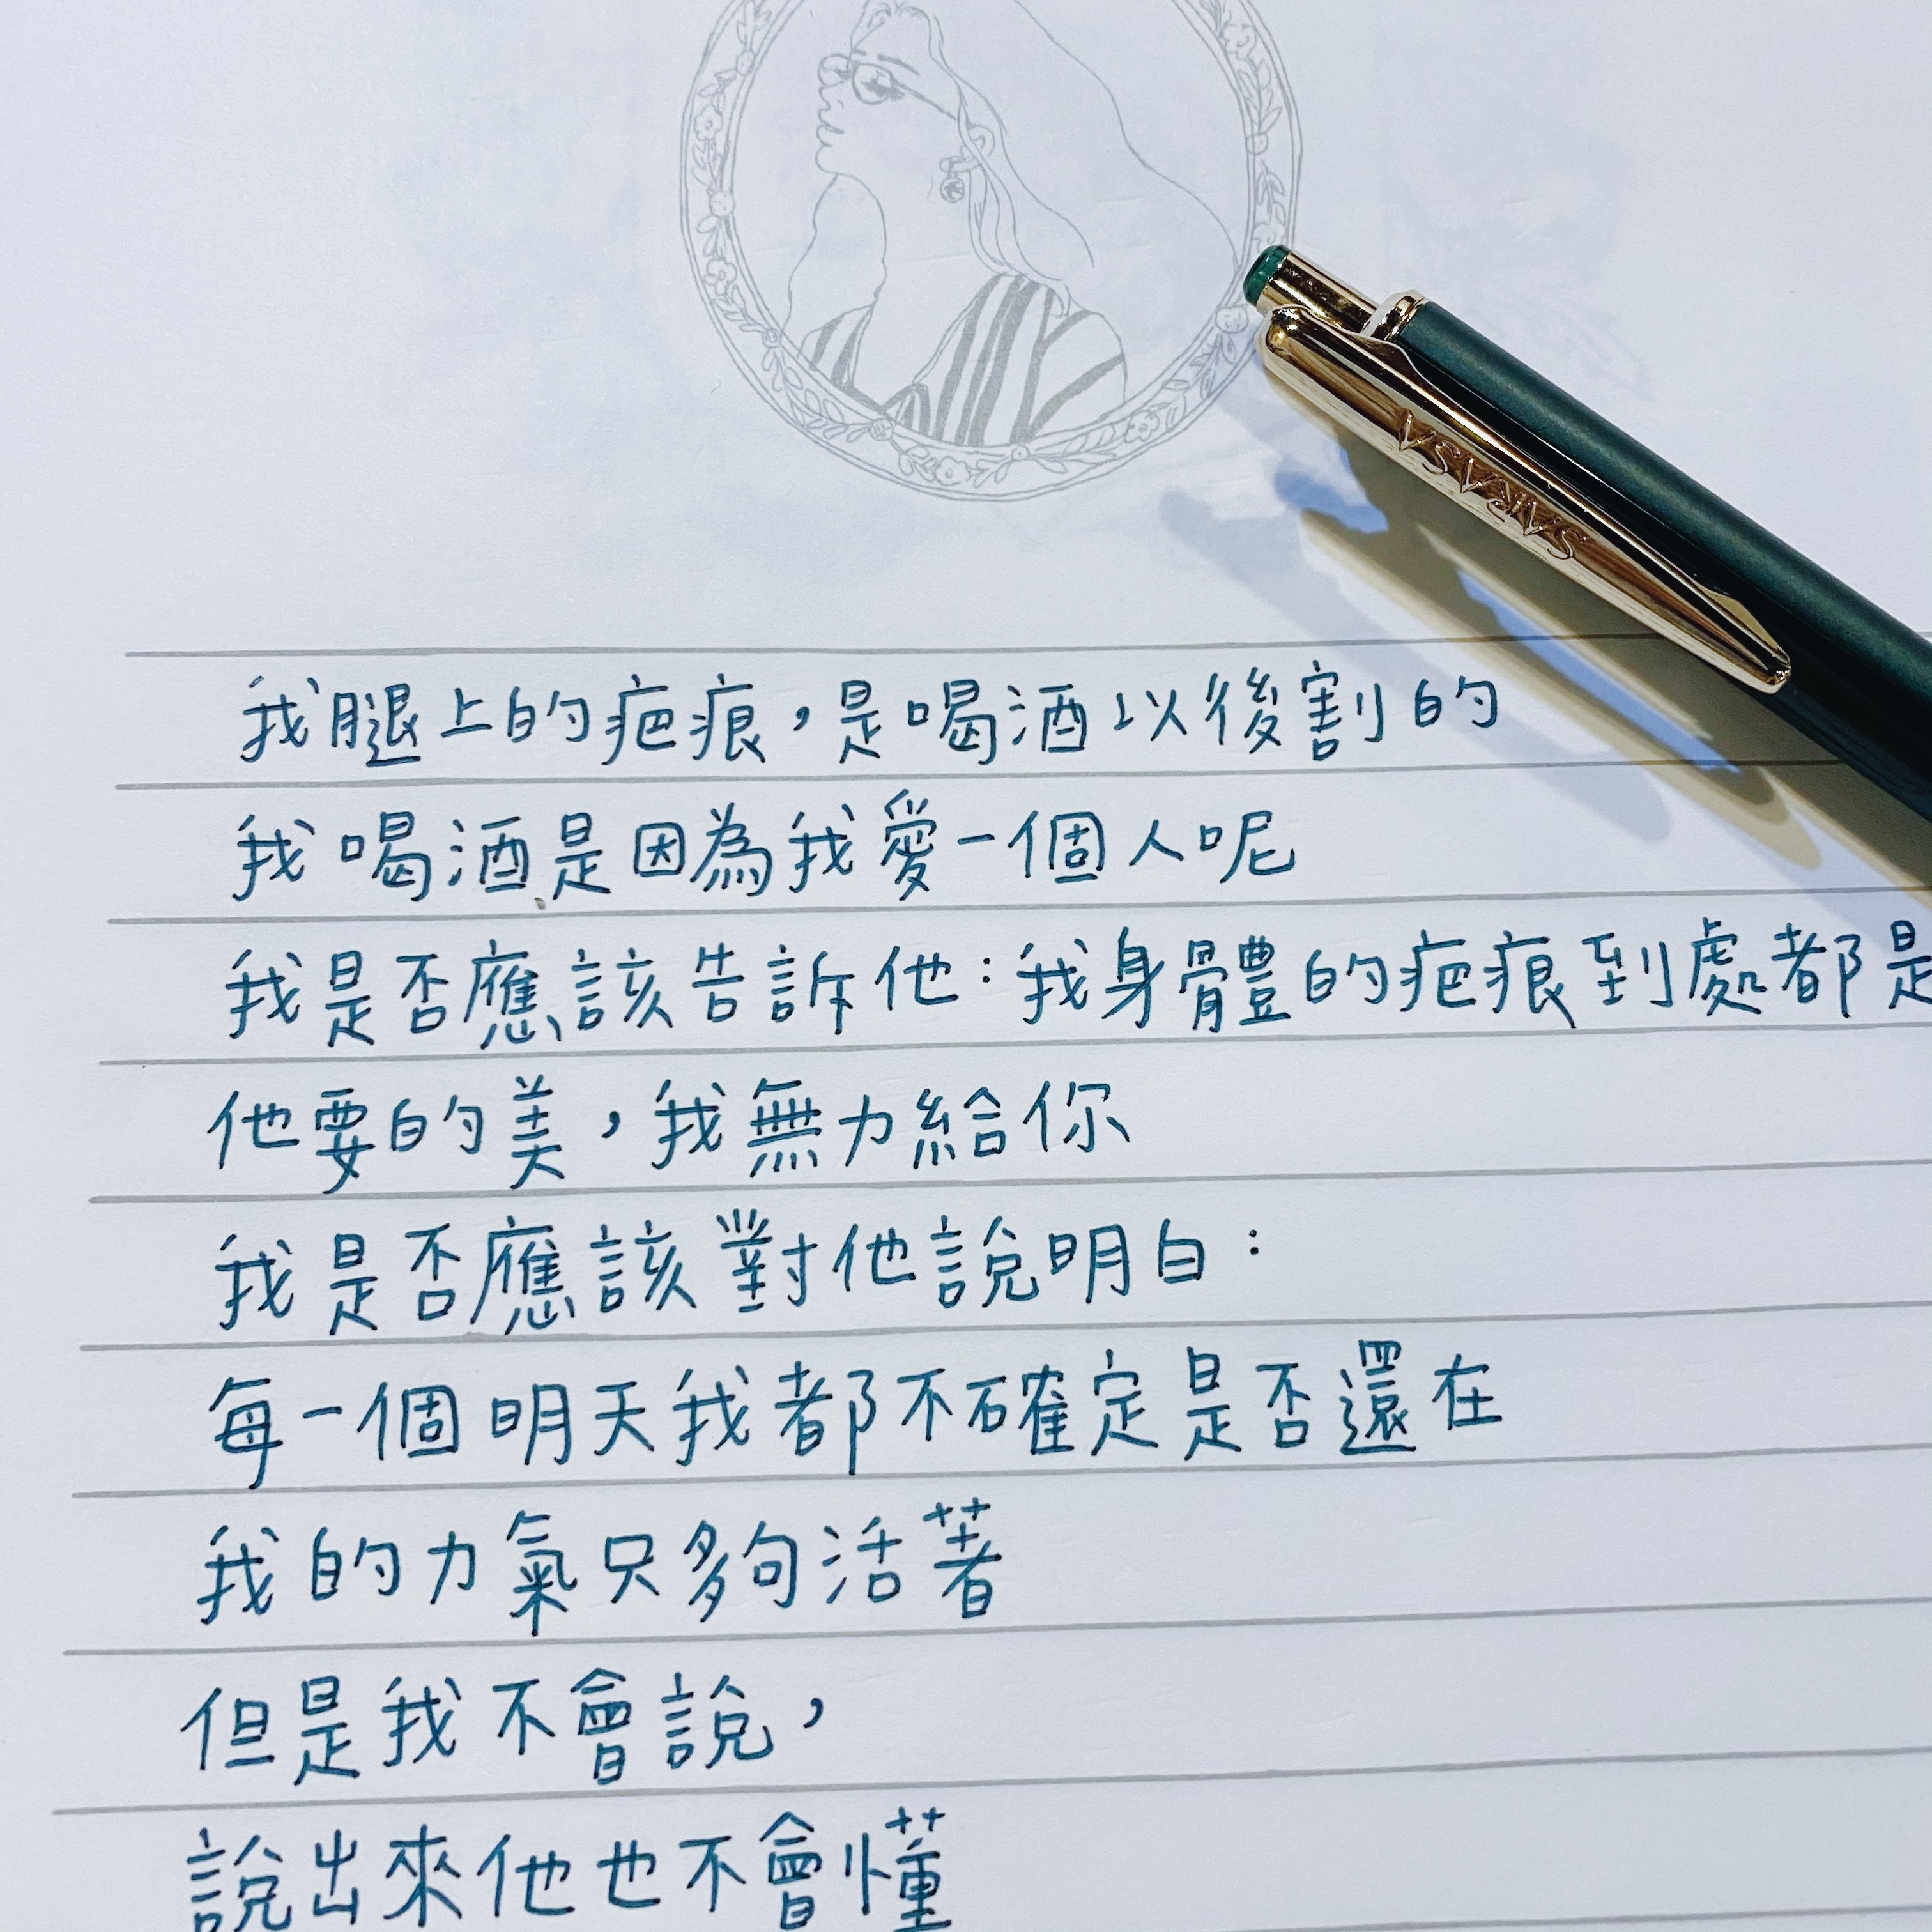 SARASA
我腿上的疤痕，是喝酒以後割的
我喝酒是因為我愛一個人呢
我是否應該告訴他：我身體的疤痕到處都是
他要的美，我無力給你
我是否應該對他說明白：
每一個明天我都不確定是否還在
我的力氣只夠活著
但是我不會說，
說出來他也不會懂